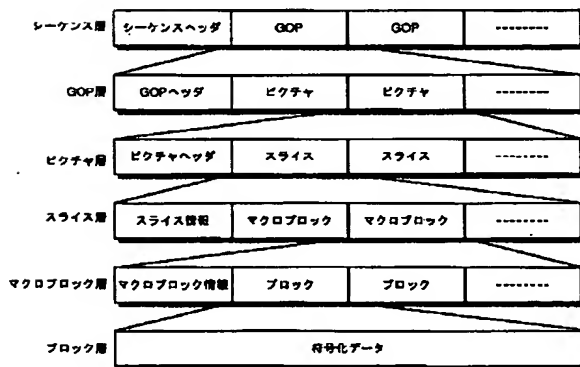 シーケンス層 シーケンスヘッダ GOP GOP --------
GOP層 GOPヘッダ ピクチャ ピクチャ --------
ピクチャ層 ピクチャヘッダ スライス スライス --------
スライス層 スライス情報 マクロブロック マクロブロック --------
マクロブロック層 マクロブロック情報 ブロック ブロック --------
ブロック層 符号化データ